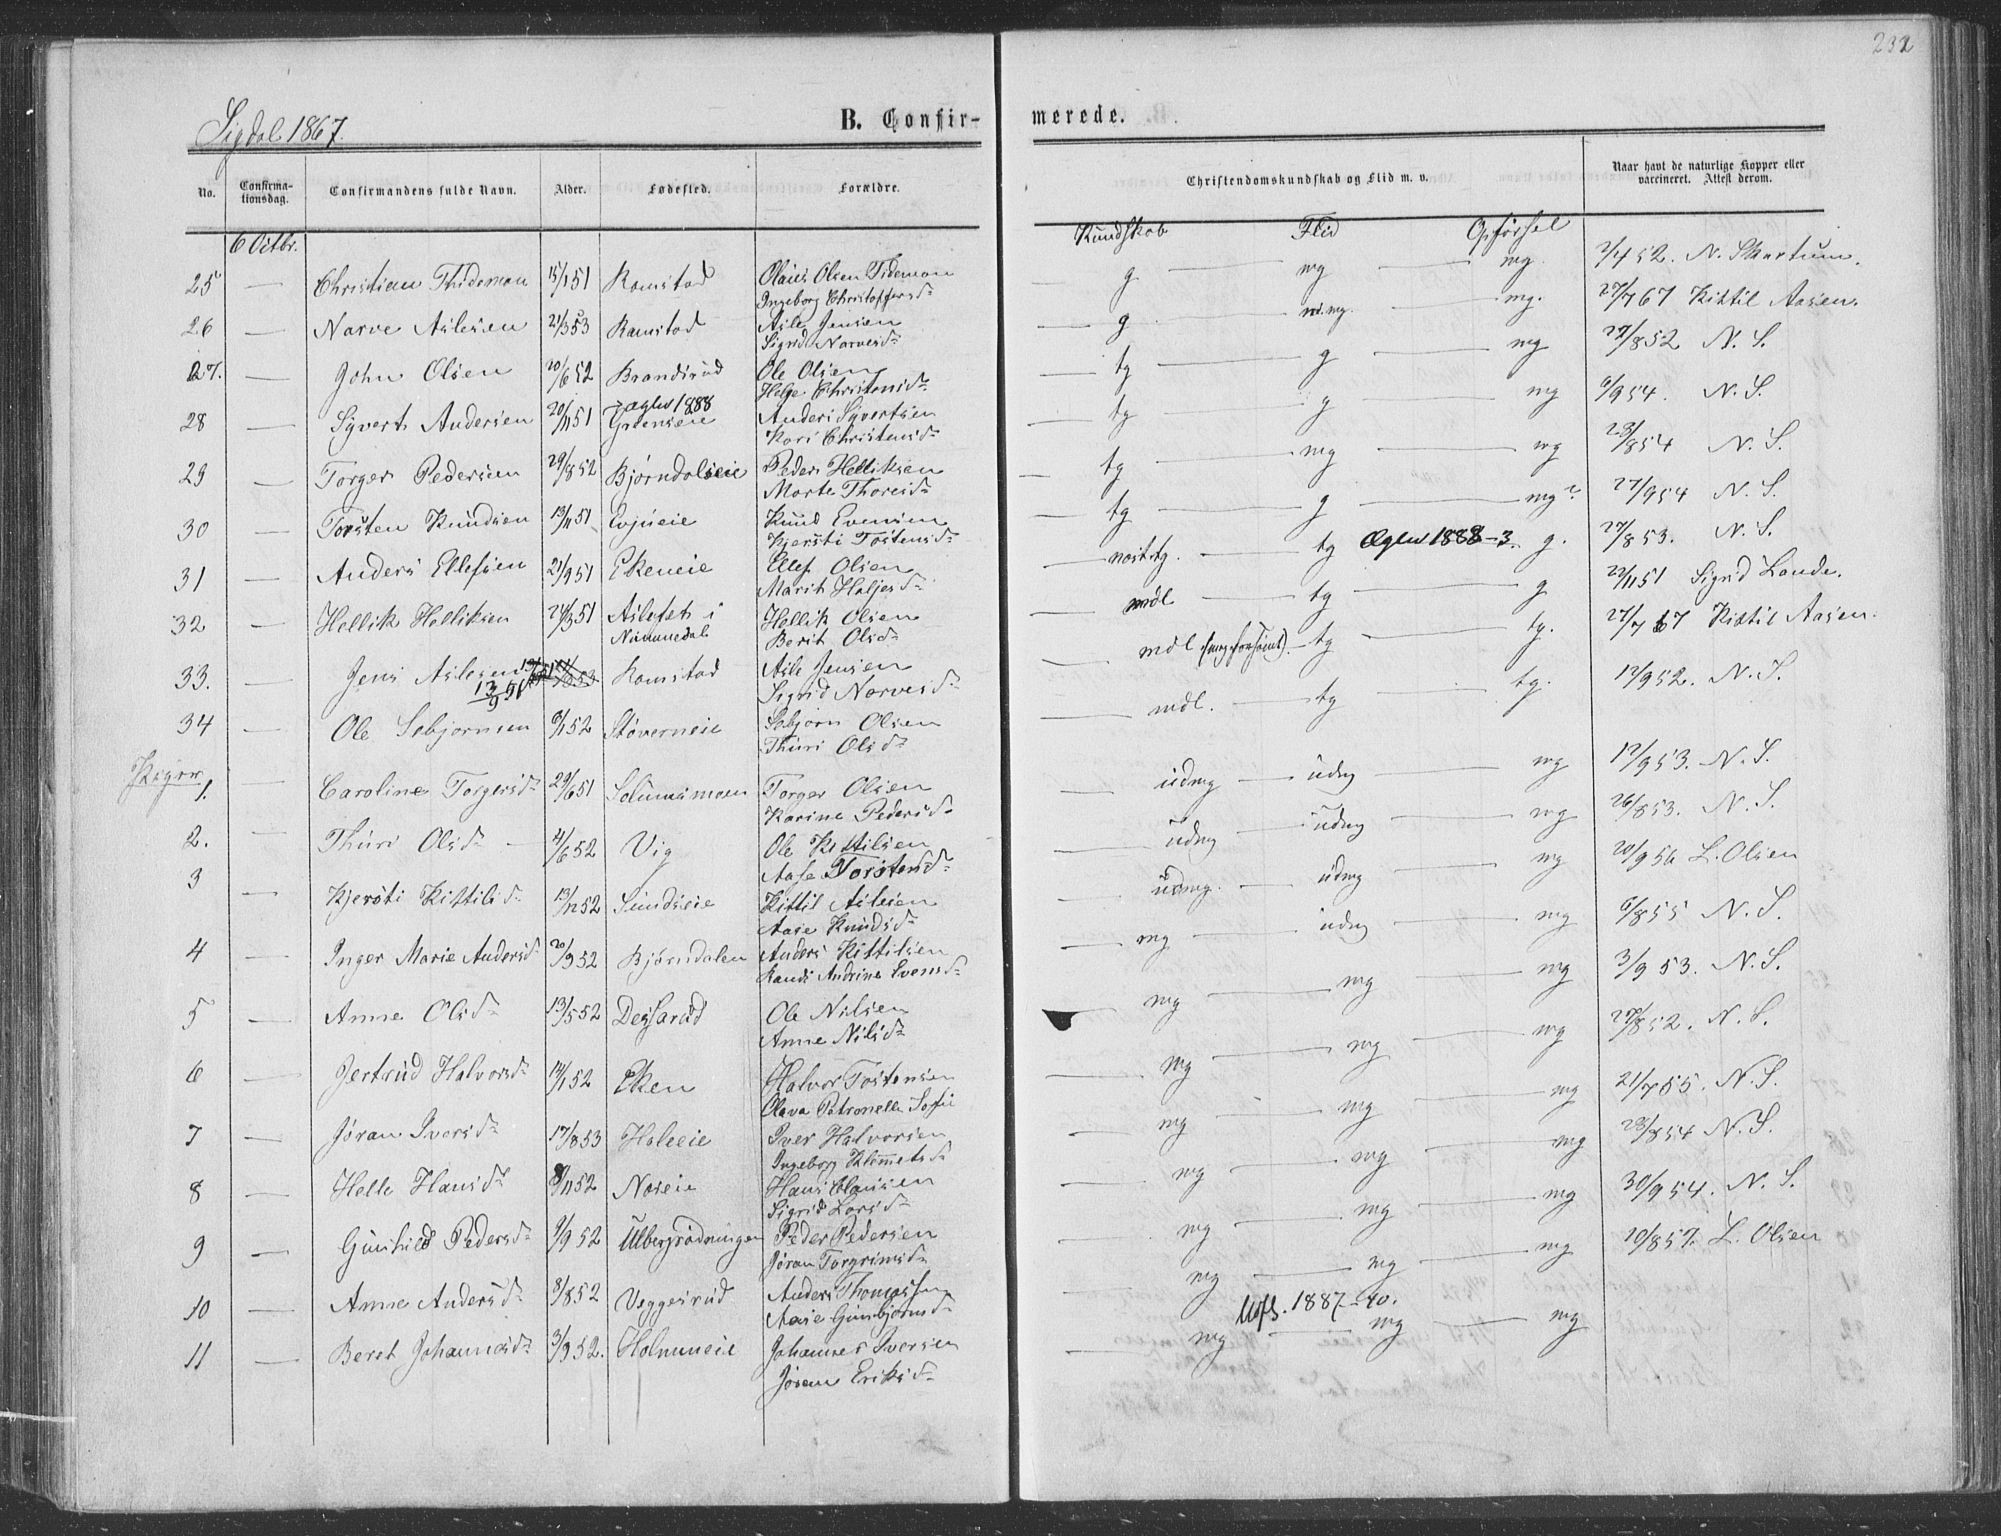 232
Sigdal 1867.
B. Confirmerede.
No. Confirmationsdag. Confirmandens fulde Navn. Alder. Fødested. Forældre. Christendomskundskab og Flid m. v. Naar havt de naturlige Kopper eller vaccineret. Attest derom.
6 Octbr. Kundskab Flid Opførsel
25 — Christian Thideman 15/1 51 Ramstad Olaus Olsen Tideman g — mg — mg. 2/4 52. N. Skartum.
Ingeborg Christoffersd.
26 — Narve Aslesen 21/3 53 Ramstad Asle Jensen — g m.mg. — mg. 27/7 67 Kittil Aasen.
Sigrid Narvesd.
27. — John Olsen 20/6 52 Brandsrud Ole Olsen — tg — g — mg 27/8 52 N. S.
Helge Christensd.
28 — Syvert Andersen 20/11 51 Grønseie Anders Syvertsen — tg — g — mg 6/9 54. N. S.
Aeglw 1888
Kari Christensd.
29 — Torger Pedersen 29/8 52 Bjørndalseie Peder Helliksen — tg — mg — mg 23/8 54 N. S.
Marte Thoresd.
30 — Torsten Knudsen 13/11 51 Evjueie Knud Evensen — tg — g — mg? 27/9 54 N. S.
Kjersti Tostensd.
31 — Anders Ellefsen 21/9 51 Ekeneie Ellef Olsen tg. — tg Aeglw 1888-3. g. 27/8 53. N. S.
Marit Haljesd.
32 — Hellik Helliksen 24/3 51 Aslefet i Hellik Olsen — mdl — tg — g 22/11 51 Sigrid Lande.
Nummedal Berit Olsd.
33. — Jens Aslesen Ramstad Asle Jensen — mdl — tg — tg. 27/7 67 Kittil Aasen.
13/9 51 Sigrid Narvesd.
34 — Ole Sebjørnsen 6/1 52 Støverneie Sebjørn Olsen — mdl. — tg — tg. 12/9 52. N. S.
Thuri Olsd.
Piger
1. — Caroline Torgersd. 29/6 51 Solumsmoen Torger Olsen udmg — udmg — mg 12/9 53. N. S.
Karine Pedersd.
2. — Thuri Olsd. — 4/6 52 Vig Ole Kittilsen udmg — udmg — mg 26/8 53. N. S.
Aase Torstensd.
3 — Kjersti Kittilsd. 13/12 52 Sundseie Kittil Aslesen — udmg. — udmg — mg 20/9 56 L. Olsen
Aase Knudsd.
4 — Inger Marie Andersd. 20/9 52 Bjørndalen Anders Kittilsen — mg — udmg — mg 6/8 55 N. S.
Randi Andrine Evensd.
5 — Anne Olsd. 13/5 52 Desserud Ole Nilsen — mg — mg — mg 3/9 53. N. S.
Anne Nilsd.
6 — Jertrud Halvorsd. 14/1 52 Eken Halvor Tostensen — mg — mg — mg 27/8 52. N. S.
Olava Petronelle Sofie
7 — Jøran Iversd. 17/8 53 Holeeie Iver Halvorsen — mg — mg — mg 21/7 55. N. S.
Ingeborg Klemmetsd.
8 — Helle Hansd. 8/11 52 Noreie Hans Clausen — mg — mg — mg 23/8 54 N. S.
Sigrid Larsd.
9 — Gunhild Pedersd. 9/9 52 Ulbergrødningen Peder Pedersen — mg — mg — mg 30/9 54. N. S.
Jøran Torgrimsd.
10 — Anne Andersd. 8/8 52 Veggesrud Anders Thomassen — mg — mg — mg 10/8 57. L. Olsen
Aase Gunbjørnsd.
1887-40.
11 — Beret Johannesd. 3/9 52. Holmmeie Johannes Iversen — mg — mg — mg
Jøran Eriksd.